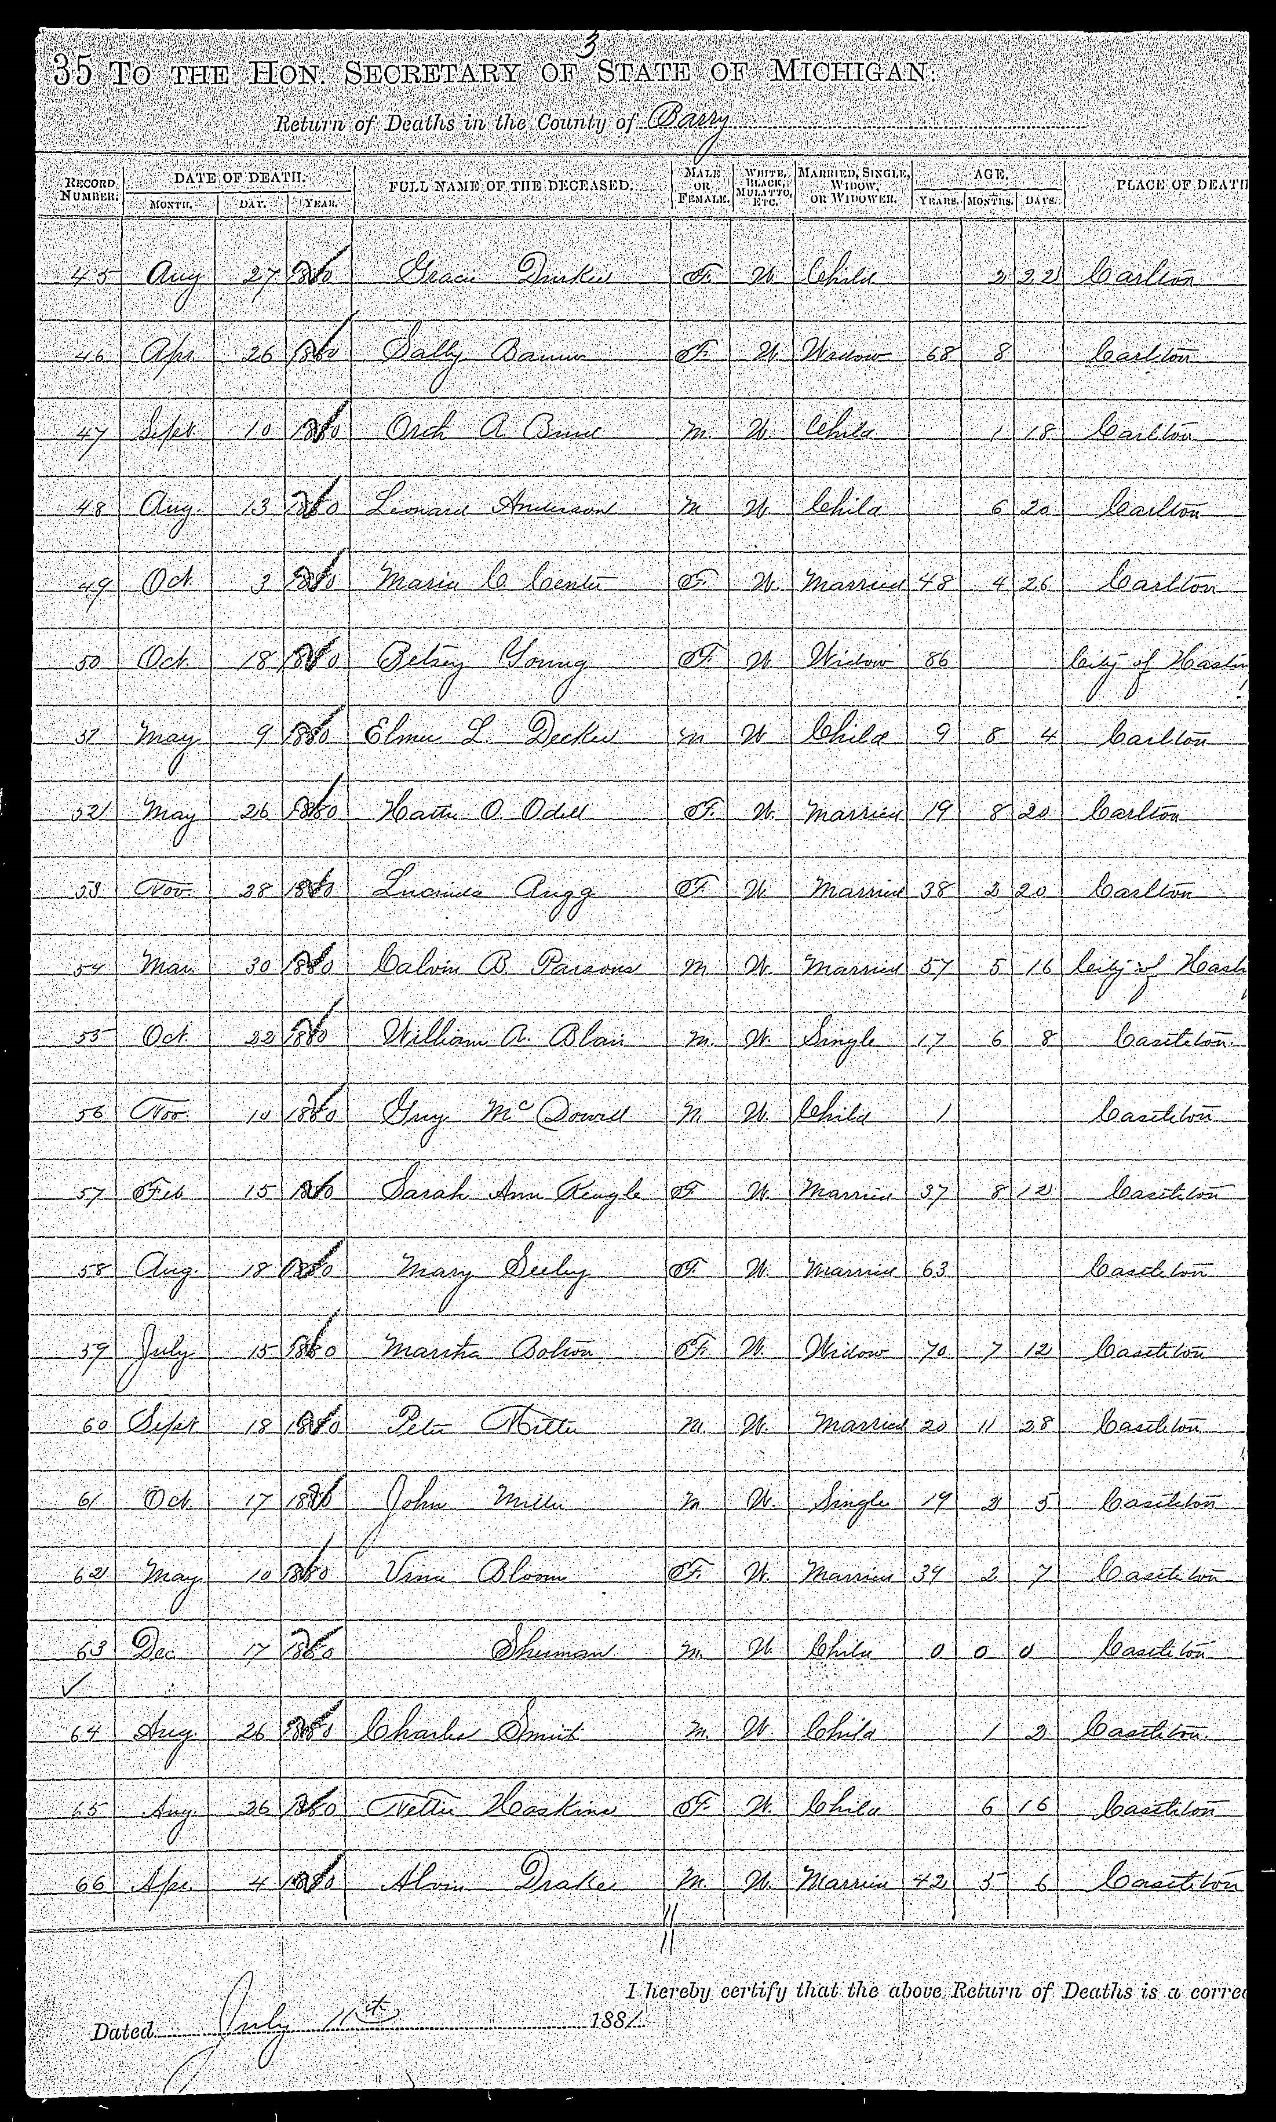 3
35 TO THE HON. SECRETARY OF STATE OF MICHIGAN:
Return of Deaths in the County of Barry
RECORD NUMBER. DATE OF DEATH. MONTH. DAY. YEAR. FULL NAME OF THE DECEASED. MALE OR FEMALE. WHITE, BLACK, MULATTO, ETC. MARRIED, SINGLE, WIDOW, OR WIDOWER. AGE. YEARS. MONTHS. DAYS. PLACE OF DEATH
45 Aug 27 1880 Gracie Durkee F. W. Child 2 22 Carlton
46 Apr 26 1880 Sally Barnum F. W. Widow 68 8 Carlton
47 Sept 10 1880 A. M. W. Child 1 18 Carlton
48 Aug. 13 1880 Leonard Anderson M W. Child 6 20 Carlton
49 Oct. 3 1880 Maria C Center F. W. Married 48 4 26 Carlton
50 Oct. 18 1880 Betsey Young F. W. Widow 86 City of Hastin
51 May 9 1880 Elmer L. Decker M W Child 9 8 4 Carlton
52 May 26 1880 Hattie O. Odell F. W. Married 19 8 20 Carlton
53 Nov. 28 1880 Lucinda F. W. Married 38 2 20 Carlton
54 Mar. 30 1880 Calvin B. Parsons M W. Married 57 5 16 City of Hasti
55 Oct. 22 1880 William A. Blair M. W. Single 17 6 8 Castleton.
56 Nov. 10 1880 Guy McDowell M W. Child 1 Castleton
57 Feb 15 1880 Sarah Ann F W. Married 37 8 12 Castleton
58 Aug. 18 1880 Mary Seeley F. W. Married 63 Castleton
59 July 15 1880 Martha Bolton F. W. Widow 70 7 12 Castleton
60 Sept 18 1880 Peter M. W. Married 20 11 28 Castleton
61 Oct. 17 1880 John Miller M W. Single 19 2 5 Castleton
62 May. 10 1880 Bloom F. W. Married 39 2 7 Castleton
63 Dec 17 1880 Sherman M. W. Child 0 0 0 Castleton
64 Aug. 26 1880 Charles Smith M. W. Child 1 2 Castleton.
65 Aug. 26 1880 Nettie Haskins F. W. Child 6 16 Castleton
66 Apr. 4 1880 Alvin Drake M. W. Married 42 5 6 Castleton
I hereby certify that the above Return of Deaths is a correc
Dated July 11th 1881